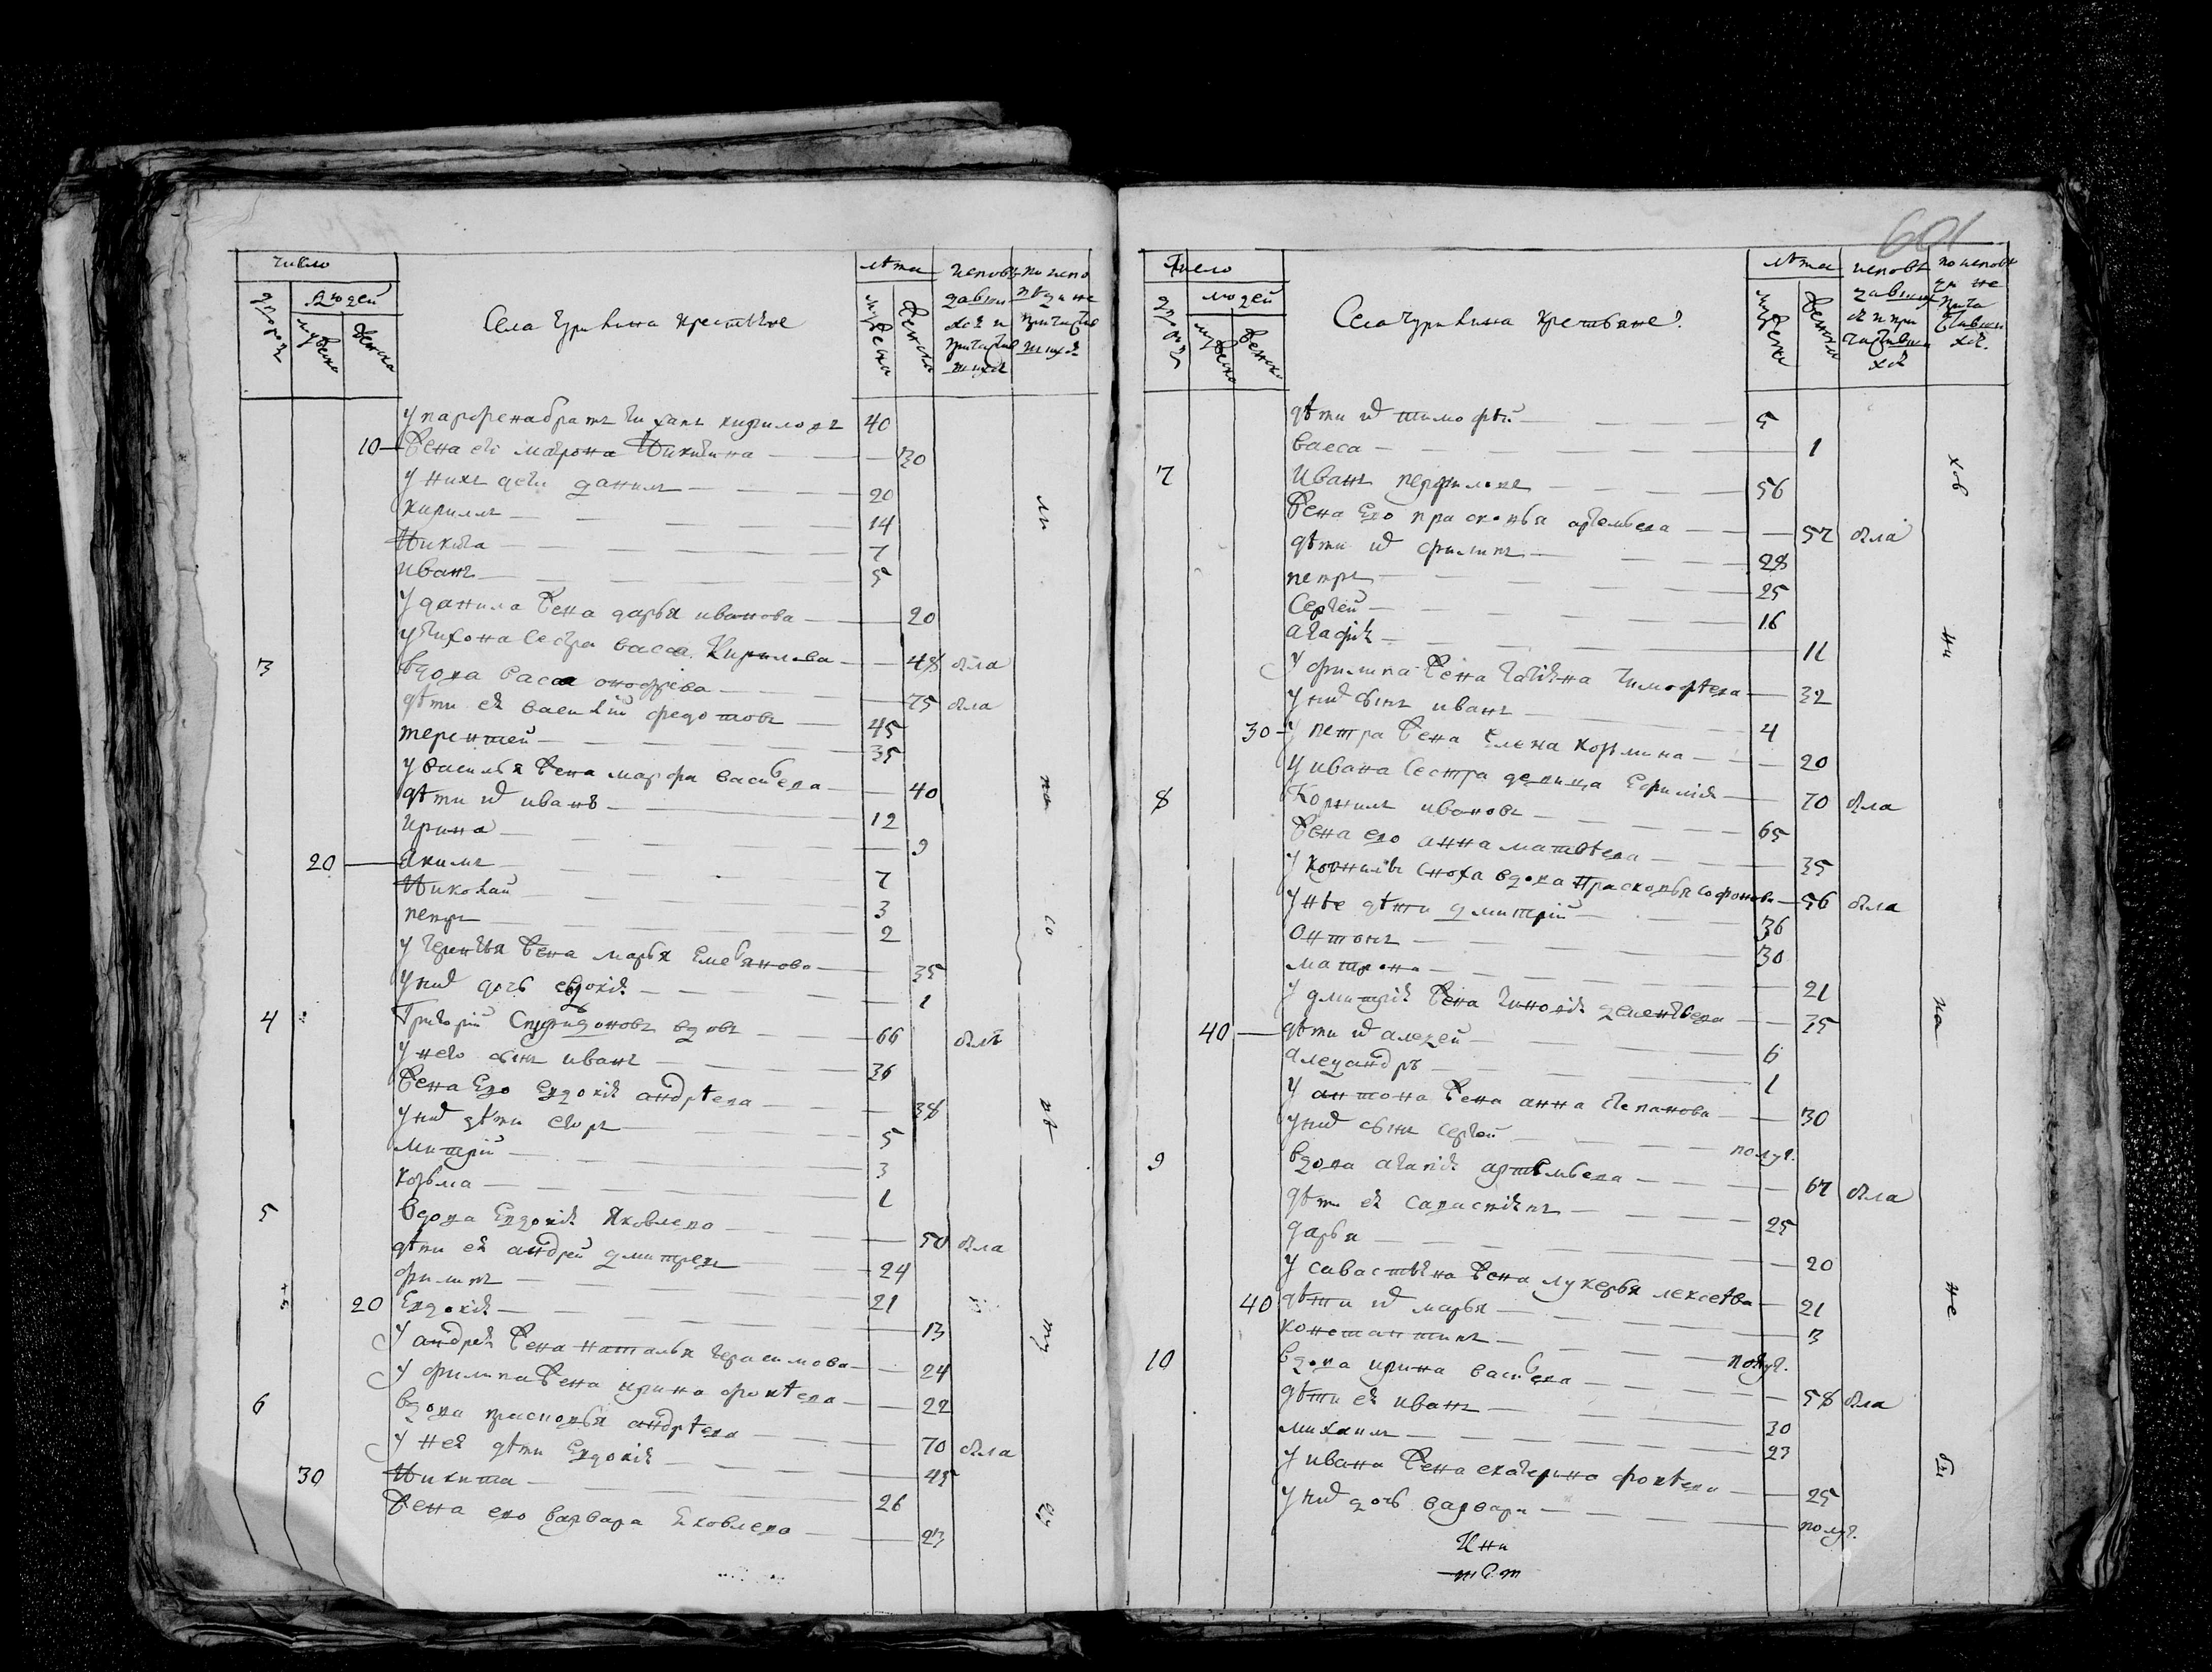 число
дворовъ
людей
мужеска
женска
Села чурикина крестьяне
лѣта
мужеска
женска
у парфена братъ тиханъ кириловъ 40
10 жена его матрона Никитина 30
у нихъ дети данилъ 20
кирилъ 14
Никита 7
иванъ 5
у данила жена дарья иванова 20
у тихона сестра васса Кирилова 48 была
3 вдова васса онофрева 75 была
дѣти ея василій федотовъ 45
терентей 35
у василья жена марфа васильева 40
дѣти их иванъ 12
Ирина 9
20 Якимъ 7
Николай 3
петръ 2
у терентья жена марья Емельянова 35
у них дочь евдокія 1
4 Григорій Спиридоновъ вдовъ 66 былъ
у него сынъ иванъ 36
жена Ево Евдокія андрѣева 38
у них дѣти егоръ 5
Митрій 3
козьма 1
5 вдова Евдокія Яковлева 50 была
дѣти ея андрей дмитревъ 24
филипъ 21
20 Евдокія 13
у андрея жена наталья герасимова 24
у филипа жена ирина фокѣева 22
6 вдова прасковья андрѣева 70 была
у нея дѣти Евдокія 45
30 Никита 26
жена ево варвара Яковлева 23
601
Число
дворовъ
людей
мужеска
женска
Села чурикина крестьяне
лѣта
мужеска
женска
дѣти их тимофѣй 5
васса 1
7 Иванъ перфиловъ 56
жена Ево прасковья артемьева 57 была
дѣти их филипъ 28
петръ 25
Сергей 16
агафія 11
у филипа жена татіяна тимофѣева 32
у них сынъ иванъ 4
30 у петра жена Елена козмина 20
у ивана сестра девица Ефимія 70 была
8 Корнилъ ивановъ 65
жена ево анна матвѣева 35
у корнила сноха вдова Прасковья софонова 56 была
у нѣе дѣти дмитрій 36
Онтонъ 30
матрона 21
у дмитрія жена зиновія дементьева 35
40 дѣти их алезей 6
алеѯандръ 1
у антона жена анна степанова 30
у них сынъ сергей полуг.
9 вдова агапія артемьева 67 была
дѣти ея савастіянъ 25
дарья 20
у савастьяна жена лукерья лексеѣва 21
40 дѣти их марья 3
константинъ полуг.
10 вдова ирина васильева 58 была
дѣти ея иванъ 30
михаилъ 23
у ивана жена екатерина фокѣева 25
у них дочь варвара полуг.